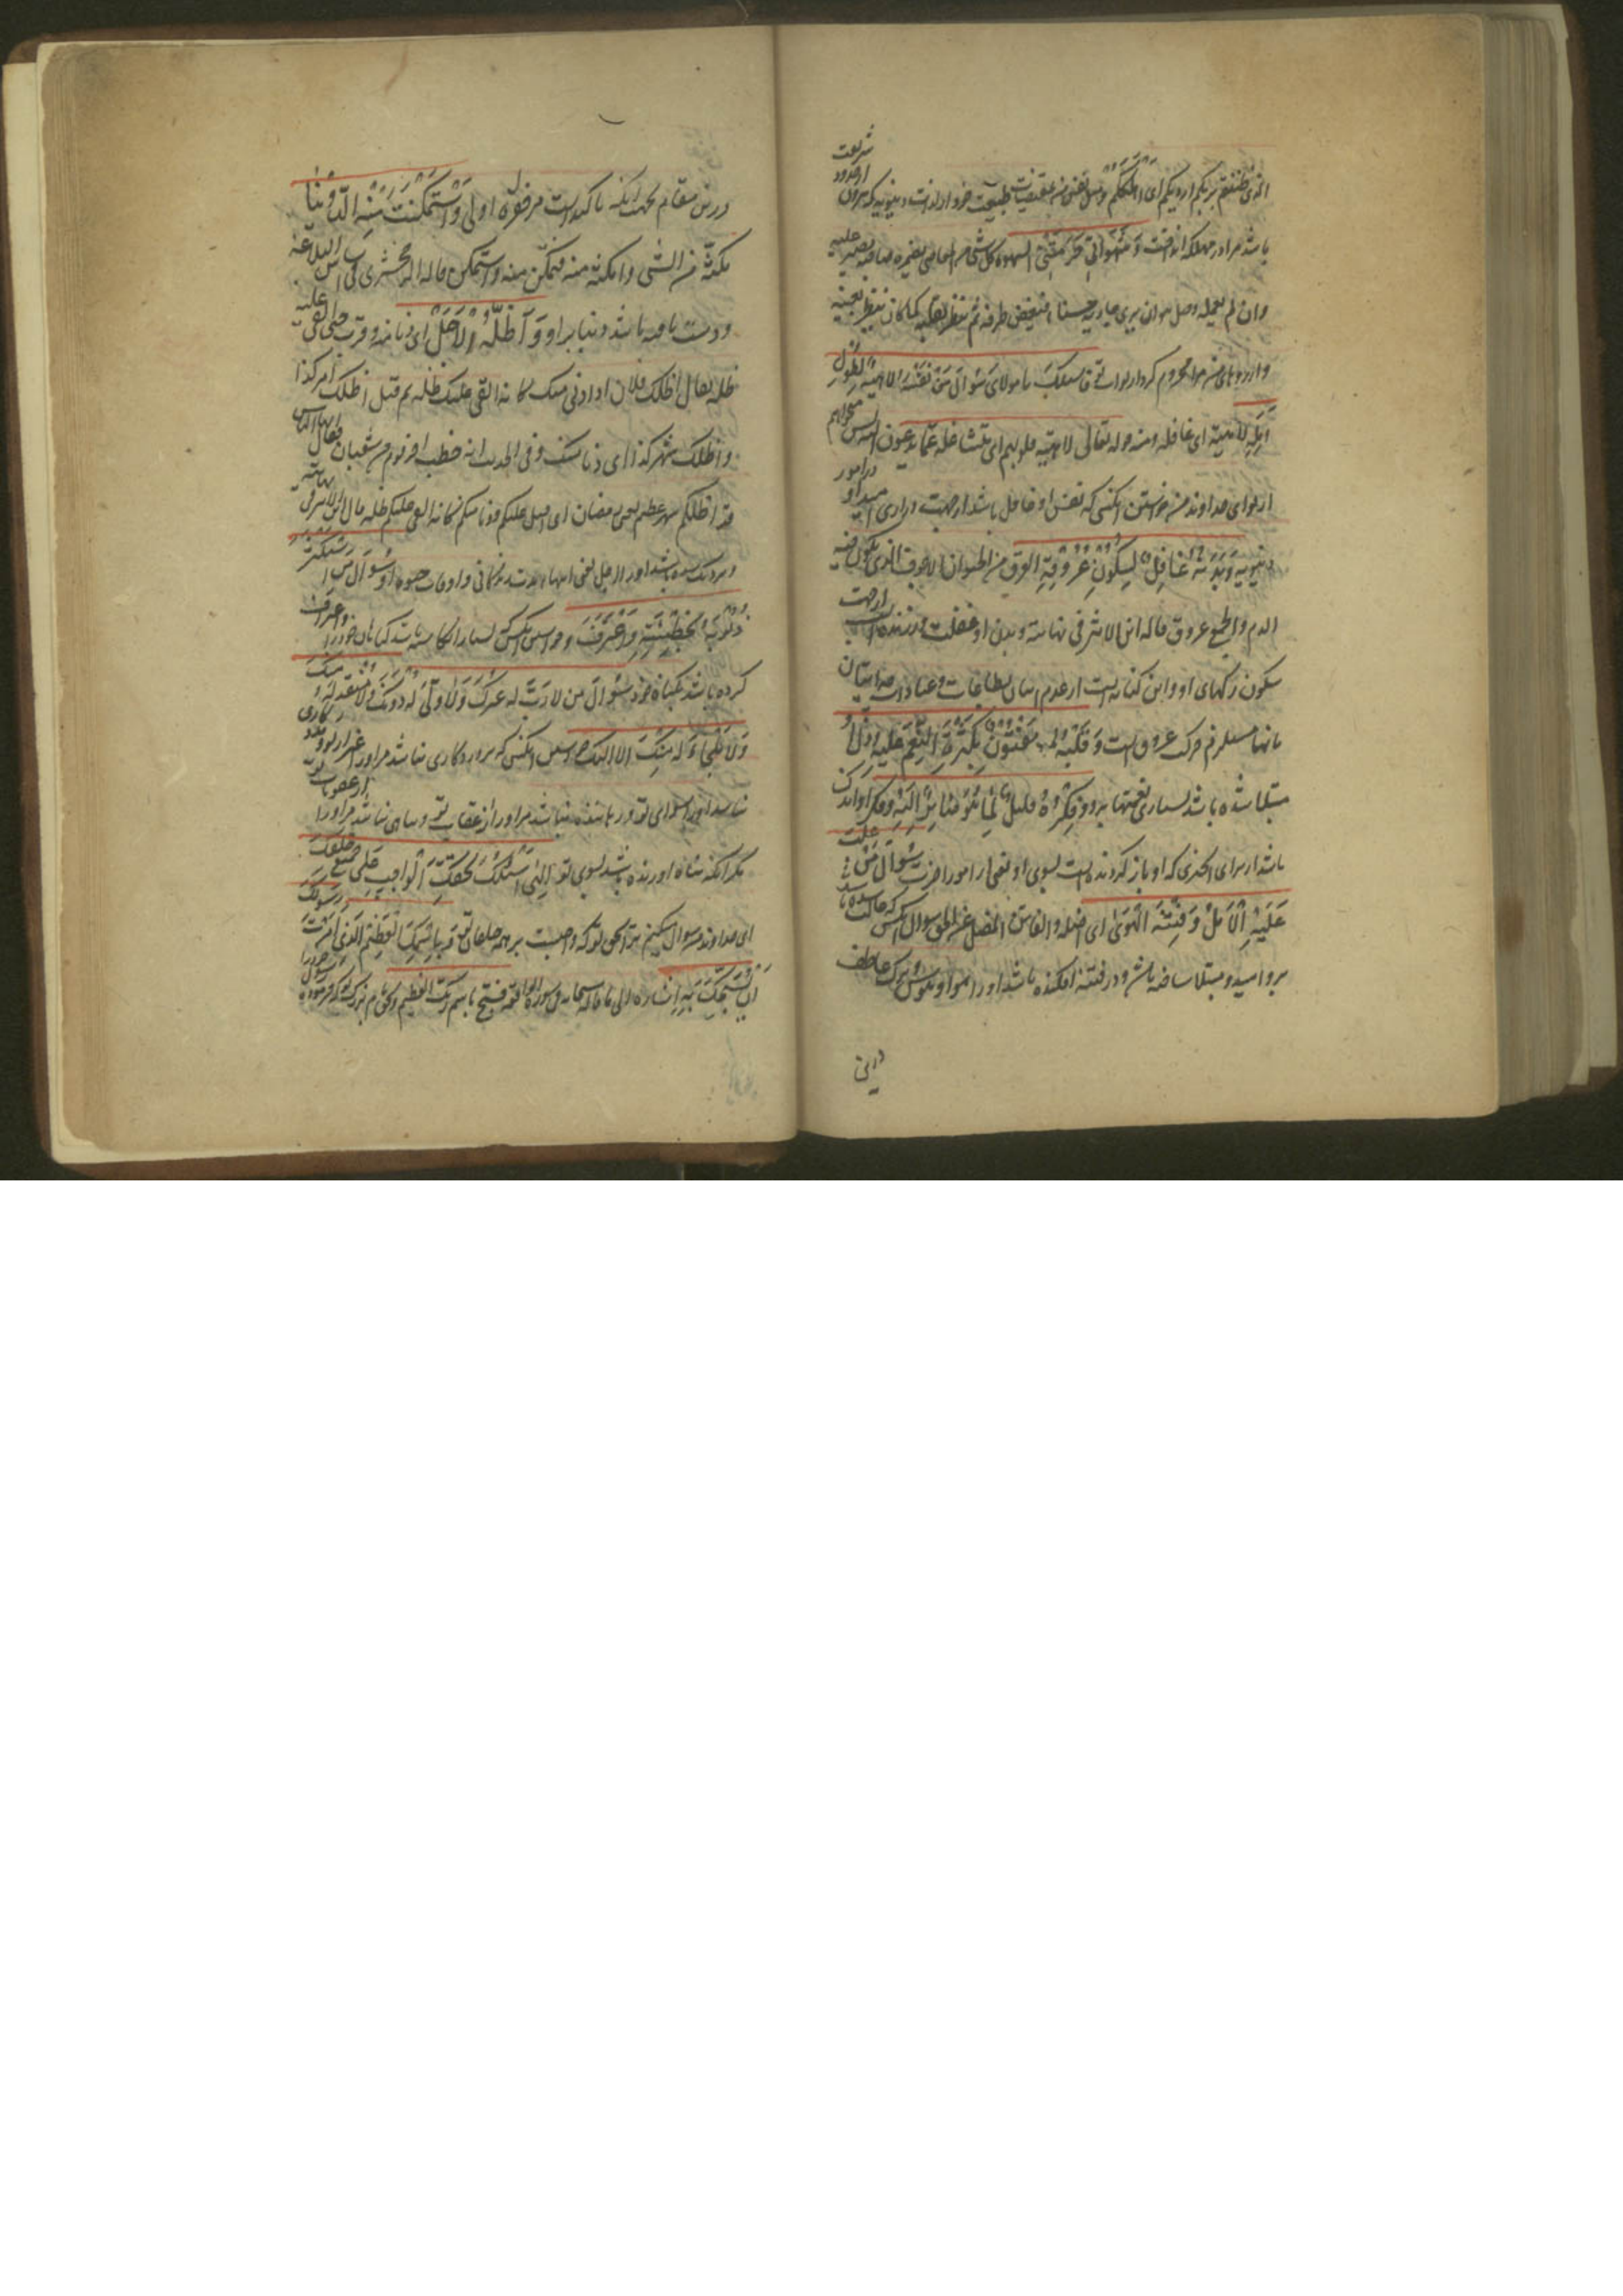 الذی ظننتم بربکم اردیکم ای اهلککم و میل نفس من بمقتضیات طبیعت خود از لذات دنیویه که بیرون از حدود شریعت
باشد مرا در مهلکه انداخت وَشَهَواتی حَرَمَتنی الشهوه کل شیٔ من المعاصی یضمره صاحبه و یصر علیه
وان لم یعمله و قیل هو ان یری جاریة حسناء فیغض طرفه ثم ینظر بقلبه کما کان ینظر بعینه
و ارزوهای من مرا محروم کرد از ثواب تو فاسئلک یا مولای سُؤالَ مَن نَفسُهُ لاهیة لِطُولِ
اَمَلِه لاهیة ای غافله و منه قوله تعالی لاهیة قلوبهم ای متشاغله عما یدعون الیه پس میخواهم
از تو ای خداوند من خواستن انکسی که نفس او غافل باشد از جهت درازی امید او در امور
دنیویه وَبَدَنُهُ غافِلٌ لِسُکُونِ عُرُوقِهِ العرق من الحیوان الاجوف الذی یکون فیه
الدم والجمع عروق قاله ابن الاثیر فی نهایته و بدن او غفلت ورزنده از جهت
سکون رگهای او و این کنایه است از عدم اتیان بطاعات و عبادات چه اتیان
بانها مستلزم حرکت عروق است وَقَلبُهُ مَفتُونٌ بِکَثرَةِ النِّعَمِ عَلَیهِ و دل او
مبتلا شده باشد ببسیاری نعمتها برو وَفِکرُهُ قلیلٌ لِما هُوَ صائِرٌ اِلَیهِ و فکر او اندک
باشد از برای انچیزی که او باز گردنده است بسوی او یعنی از امور اخرت سُؤالَ مَن غَلَبَ
عَلَیهِ الاَمَلُ وَفَتَنَهُ الهَوی ای اضله والفاتن المضل عن الحق سوال انکس که غالب شده باشد
برو امید و مبتلا ساخته باشد و در فتنه افکنده باشد او را هوا و هوس ترک عاطف
درین
درین مقام بجهت انکه تاکید است مر فقره اولی وَاستَمکَنَت مِنهُ الدُّنیا
مکنته من الشی وامکنته منه فتمکن منه واستمکن قاله الزمخشری فی اساس البلاغه
و دست یافته باشد دنیا بر او وَاَظَلَّهُ الاَجَلُ ای دنا منه و قرب حتی القی علیه
ظله یقال اظلک فلان اذا دنی منک کانه القی علیک ظله ثم قیل اظلک امر کذا
و اظلک شهر کذا ای دنا منک و فی الحدیث انه خطب اخر یوم من شعبان فقال ایها الناس
قد اظلکم شهر عظیم یعنی رمضان ای اقبل علیکم و دنا منکم کانه القی علیکم ظله قال ابن الاثیر فی نهایته
و نزدیک شده باشد او را اجل یعنی انتهاء مدت زندگانی و اوقات حیوه او سُؤالَ مَنِ استَکثَرَ
ذُنُوبَهُ بِخَطیئَتِهِ وَاعتَرَفَ و خواستن انکس که بسیار انگاشته باشد گناهان خود را و اعتراف
کرده باشد بگناه خود سُؤالَ مَن لا رَبَّ لَهُ غَیرُکَ وَلا وَلِیَّ لَهُ دُونَکَ وَلا مُنقِذَ لَهُ مِنکَ
وَلا مَلجَاءَ لَهُ مِنکَ الا الیک خواستن انکسی که پروردکاری نباشد مر او را غیر از تو و مددکاری
نباشد او را سوای تو و رهاننده نباشد مر او را از عقاب تو و پناهی نباشد مر او را از عقوبات تو
مکر انکه پناه اورنده باشد بسوی تو اِلهی اَسئَلُکَ بِحَقِّکَ الواجِبِ عَلی جمیعِ خَلقِکَ
ای خداوند من سوال میکنم ترا بحق تو که واجبست بر همه خلقان تو وَبِاسمِکَ العَظیمِ الَّذی اَمَرتَ رَسُولَکَ
اَن یُسَبِّحَکَ بِهِ اشاره الی ما قاله سبحانه فی سورة الواقعه فسبح باسم ربک العظیم و بحق نام بزرک تو که فرموده رسول خود را